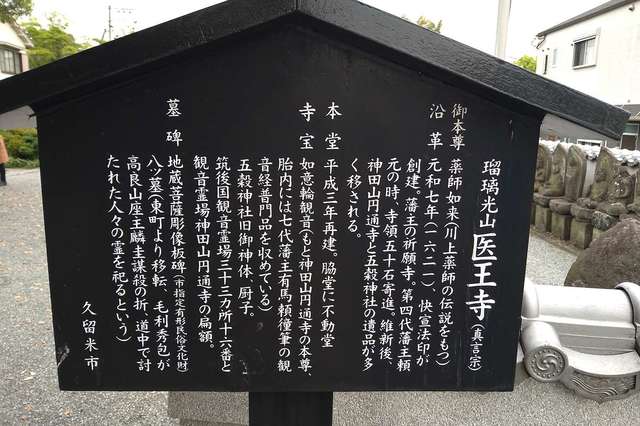 瑠璃光山医王寺(真言宗)
御本尊 薬師如来(川上薬師の伝説をもつ)
沿革 元和七年(一六二一)、快宣法印が
創建。藩主の祈願寺。第四代藩主頼
元の時、寺領五十石寄進。維新後、
神田山円通寺と五穀神社の遺品が多
く移される。
本堂 平成三年再建。脇堂に不動堂
寺宝 如意輪観音(もと神田山円通寺の本尊、
胎内には七代藩主有馬頼徸筆の観
音経普門品を収めている)
五穀神社旧御神体、厨子。
筑後国観音霊場三十三カ所十六番と
観音霊場神田山円通寺の扁額。
墓碑 地蔵菩薩彫像板碑(市指定有形民俗文化財)
八ツ墓(東町より移転、毛利秀包が
高良山座主麟圭謀殺の折、道中で討
たれた人々の霊を祀るという)
久留米市